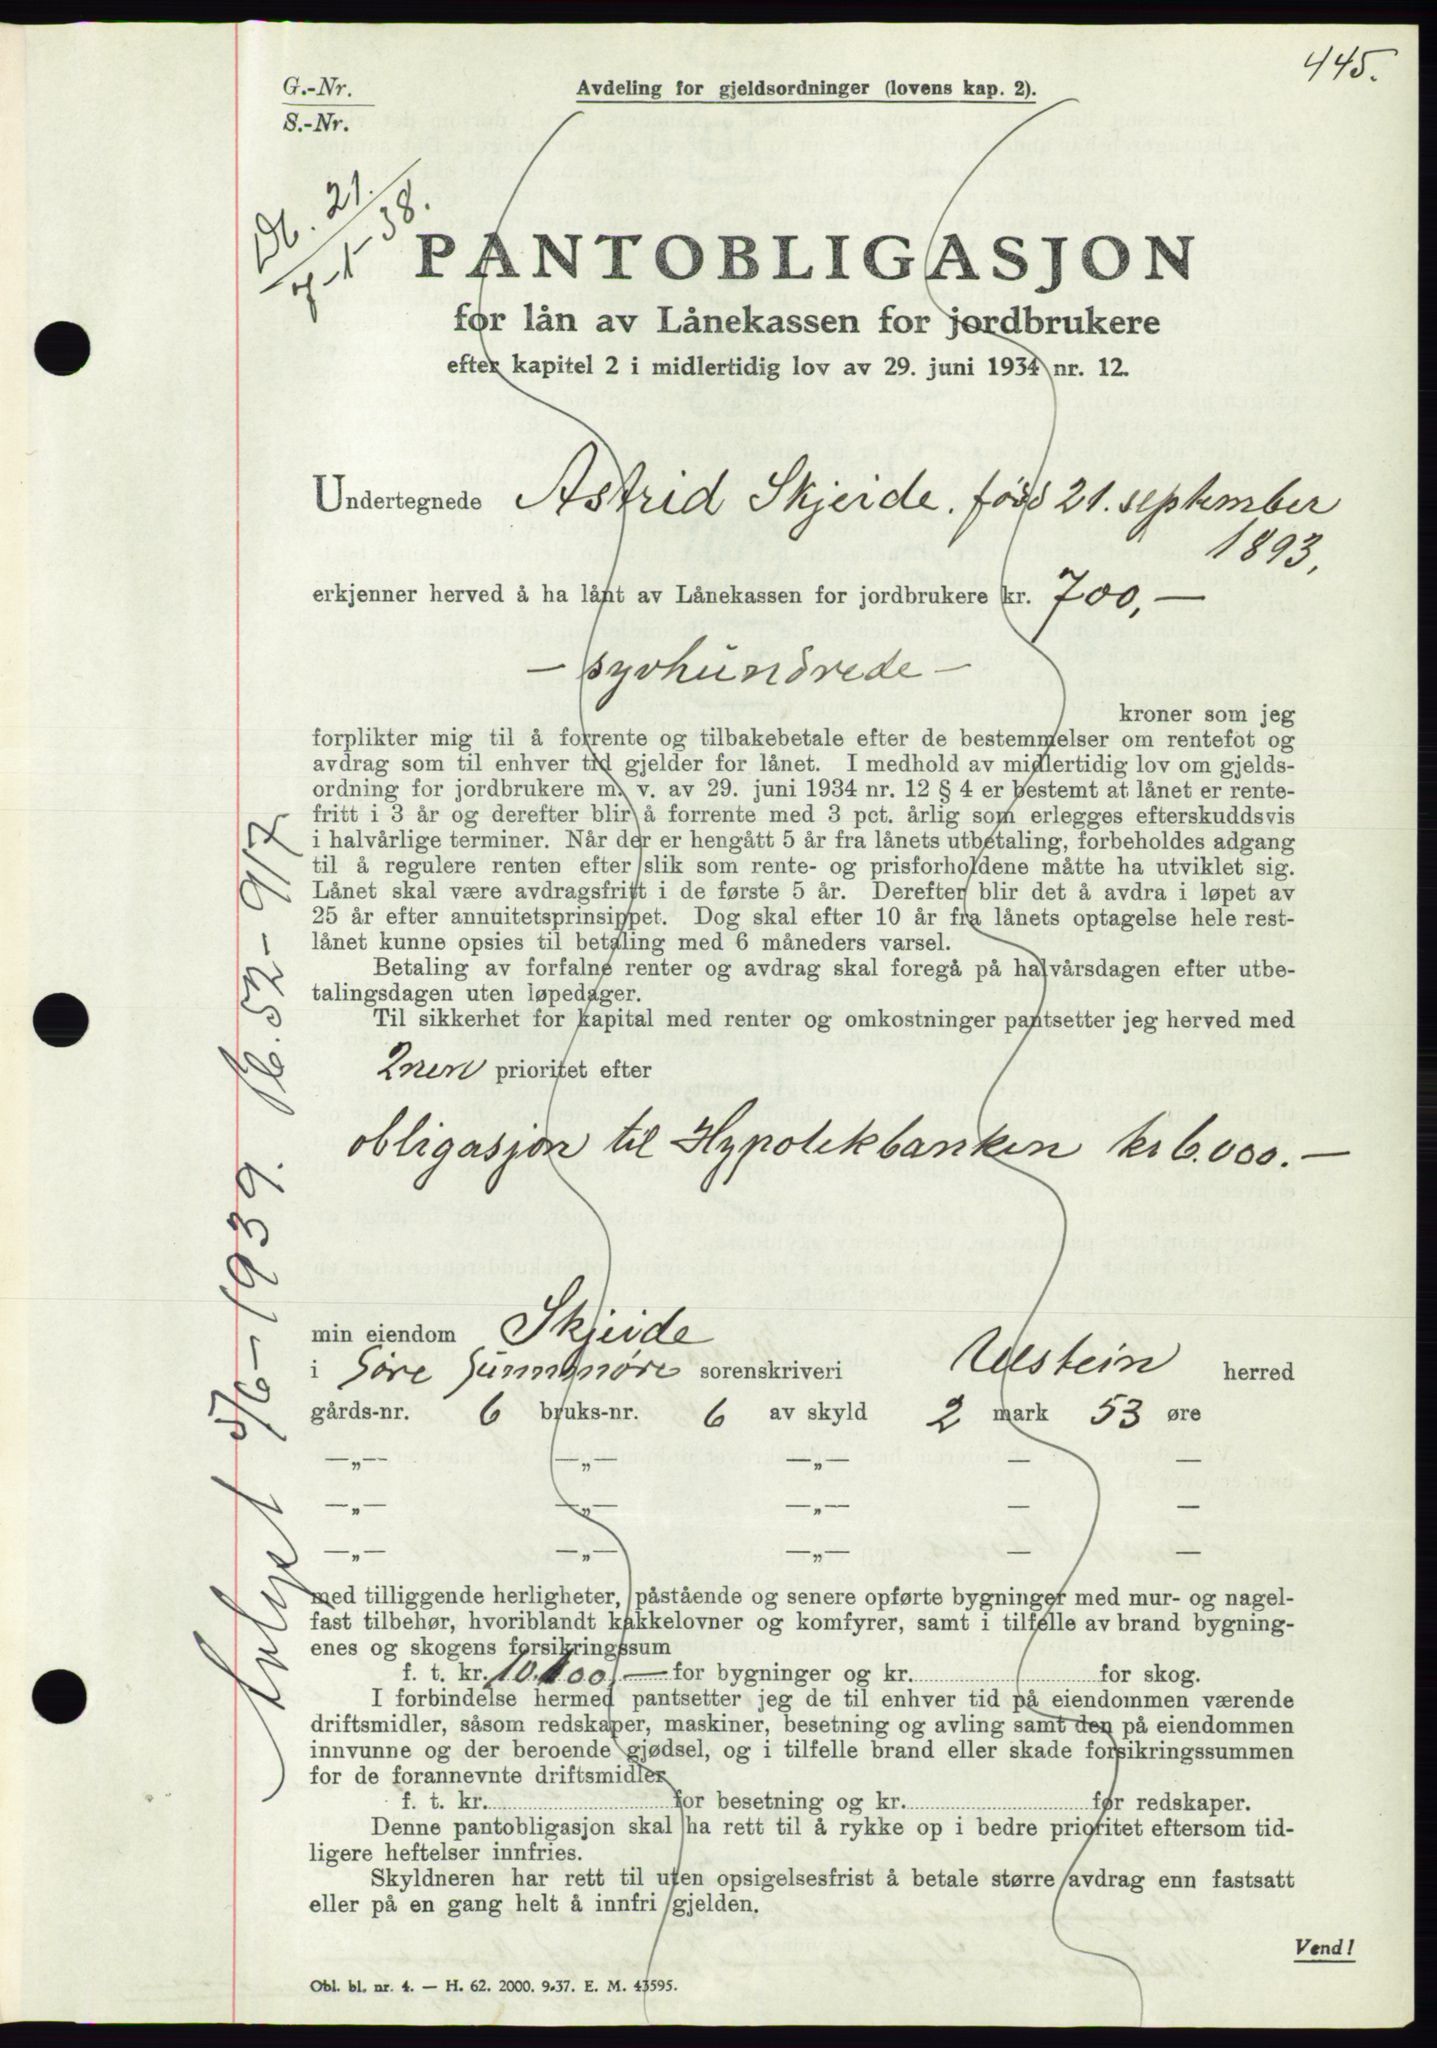 445.
G.-Nr.
S.-Nr.
Avdeling for gjeldsordninger (lovens kap. 2).
Db. 21.
7-1-38.
PANTOBLIGASJON
for lån av Lånekassen for jordbrukere
efter kapitel 2 i midlertidig lov av 29. juni 1934 nr. 12.
Undertegnede Astrid Skjeide, født 21. september
1893,
erkjenner herved å ha lånt av Lånekassen for jordbrukere kr. 700,—
— syvhundrede —
kroner som jeg
forplikter mig til å forrente og tilbakebetale efter de bestemmelser om rentefot og
avdrag som til enhver tid gjelder for lånet. I medhold av midlertidig lov om gjelds-
ordning for jordbrukere m. v. av 29. juni 1934 nr. 12 § 4 er bestemt at lånet er rente-
fritt i 3 år og derefter blir å forrente med 3 pct. årlig som erlegges efterskuddsvis
i halvårlige terminer. Når der er hengått 5 år fra lånets utbetaling, forbeholdes adgang
til å regulere renten efter slik som rente- og prisforholdene måtte ha utviklet sig.
Lånet skal være avdragsfritt i de første 5 år. Derefter blir det å avdra i løpet av
25 år efter annuitetsprinsippet. Dog skal efter 10 år fra lånets optagelse hele rest-
lånet kunne opsies til betaling med 6 måneders varsel.
Betaling av forfalne renter og avdrag skal foregå på halvårsdagen efter utbe-
talingsdagen uten løpedager.
Til sikkerhet for kapital med renter og omkostninger pantsetter jeg herved med
2nen prioritet efter
obligasjon til Hypotekbanken kr 6.000.—
min eiendom Skjeide
i Søre Sunnmøre sorenskriveri Ulstein herred
gårds-nr. 6 bruks-nr. 6 av skyld 2 mark 53 øre
—„— —„— —„— — —
—„— —„— —„— — —
—„— —„— —„— — —
med tilliggende herligheter, påstående og senere opførte bygninger med mur- og nagel-
fast tilbehør, hvoriblandt kakkelovner og komfyrer, samt i tilfelle av brand bygning-
enes og skogens forsikringssum
f. t. kr. 10.100,— for bygninger og kr. for skog.
I forbindelse hermed pantsetter jeg de til enhver tid på eiendommen værende
driftsmidler, såsom redskaper, maskiner, besetning og avling samt den på eiendommen
innvunne og der beroende gjødsel, og i tilfelle brand eller skade forsikringssummen
for de forannevnte driftsmidler
f. t. kr. for besetning og kr. for redskaper.
Denne pantobligasjon skal ha rett til å rykke op i bedre prioritet eftersom tid-
ligere heftelser innfries.
Skyldneren har rett til uten opsigelsesfrist å betale større avdrag enn fastsatt
eller på en gang helt å innfri gjelden.
Vend!
Obl. bl. nr. 4. — H. 62. 2000. 9-37. E. M. 43595.
Avlyst 5/6-1939. fb. 52-917